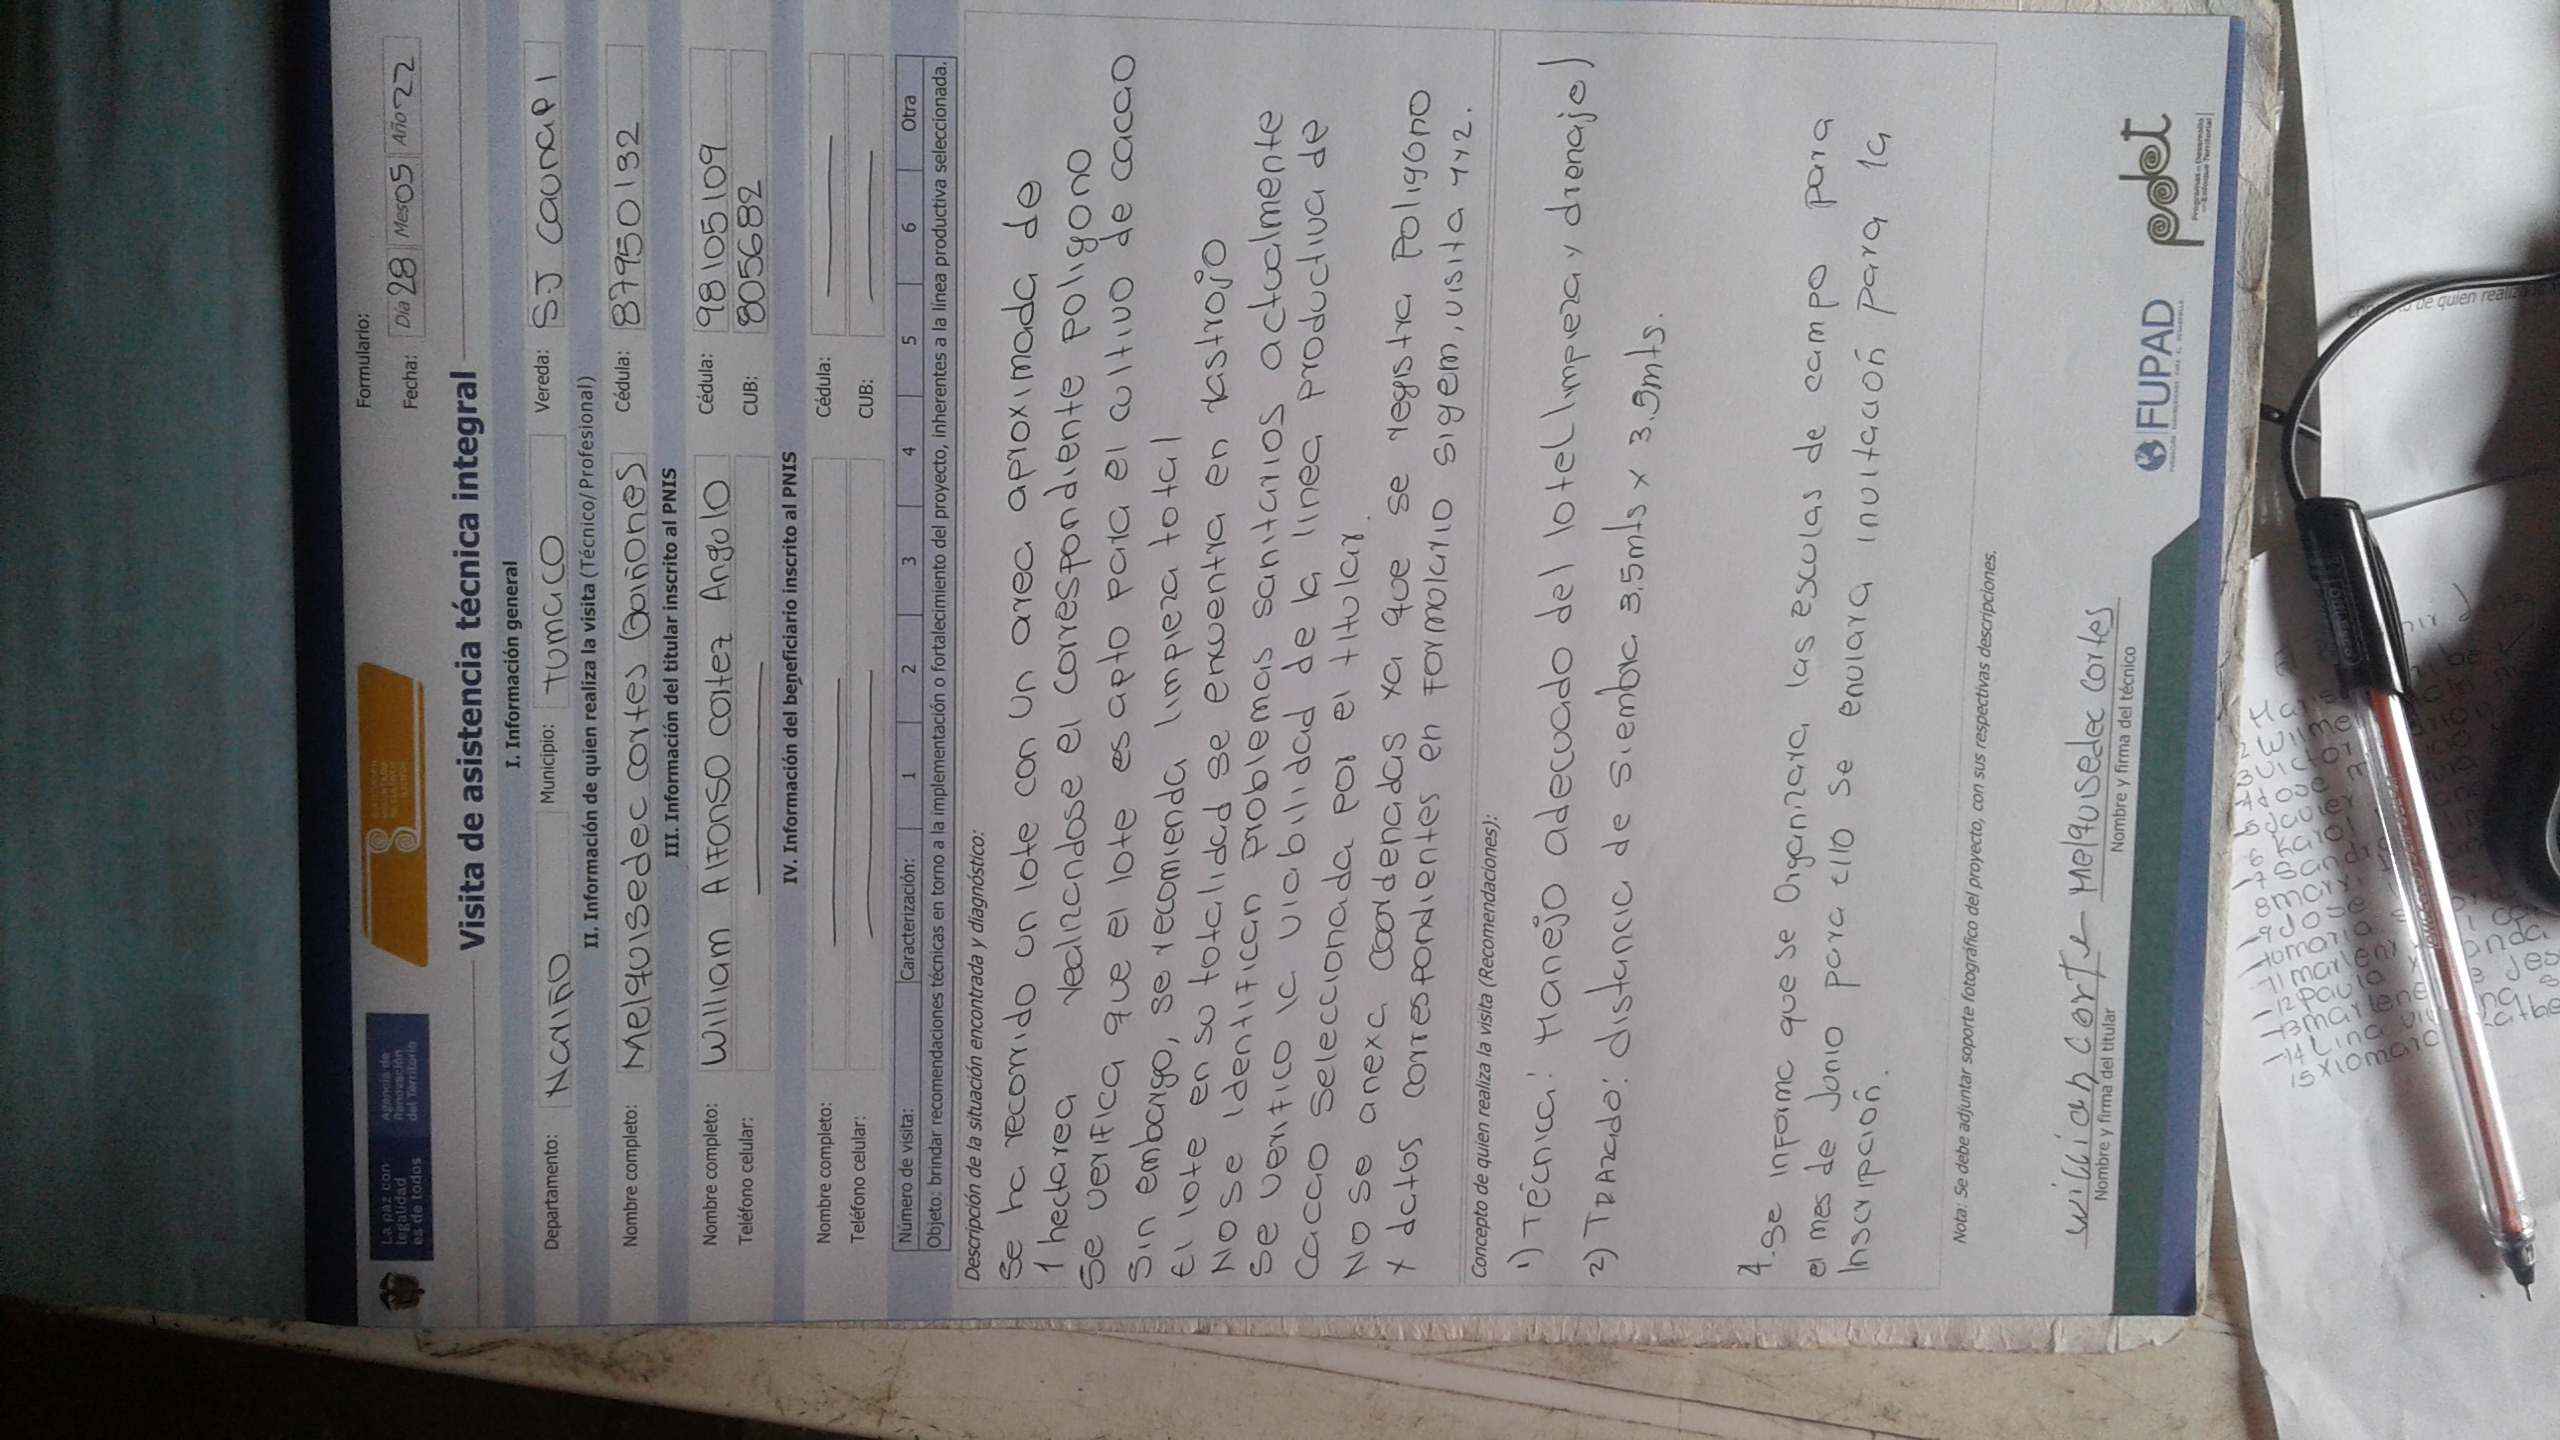 La paz con
legalidad
es de todos
Agencia de
Renovación
del Territorio
Formulario:
Fecha: Día 28 Mes 05 Año 22
Visita de asistencia técnica integral
I. Información general
Departamento: Nariño Municipio: Tumaco Vereda: SJ Caunapi
II. Información de quien realiza la visita (Técnico/Profesional)
Nombre completo: Melquisedec cortes Quiñones Cédula: 87950132
III. Información del titular inscrito al PNIS
Nombre completo: William Alfonso cortez Angulo Cédula: 98105109
Teléfono celular: CUB: 805682
IV. Información del beneficiario inscrito al PNIS
Nombre completo: Cédula:
Teléfono celular: CUB:
Número de visita: Caracterización: 1 2 3 4 5 6 Otra
Objeto: brindar recomendaciones técnicas en torno a la implementación o fortalecimiento del proyecto, inherentes a la línea productiva seleccionada.
Descripción de la situación encontrada y diagnóstico:
Se ha recorrido un lote con un area aproximada de
1 hectarea realizandose el correspondiente poligono
Se verifica que el lote es apto para el cultivo de cacao
Sin embargo, se recomienda limpieza total
El lote en so totalidad se encuentra en rastrojo
No se identifican problemas sanitarios actualmente
Se verifico la viabilidad de la linea productiva de
Cacao Seleccionada por el titular.
No se anexa coordenadas ya que se registra poligono
y datos correspondientes en formulario sigem, visita 1y2.
Concepto de quien realiza la visita (Recomendaciones):
1) Técnica: Manejo adecuado del lote(limpieza y drenaje)
2) Trazado: distancia de siembra 3.5mts x 3.5mts.
4.-Se informa que se organizara las esculas de campo para
el mes de Junio para ello se enviara invitación para la
Inscripción.
Nota: Se debe adjuntar soporte fotográfico del proyecto, con sus respectivas descripciones.
Willian Corte
Nombre y firma del titular
Melquisedec Cortes
Nombre y firma del técnico
FUPAD
pdet
Programas de Desarrollo
con Enfoque Territorial